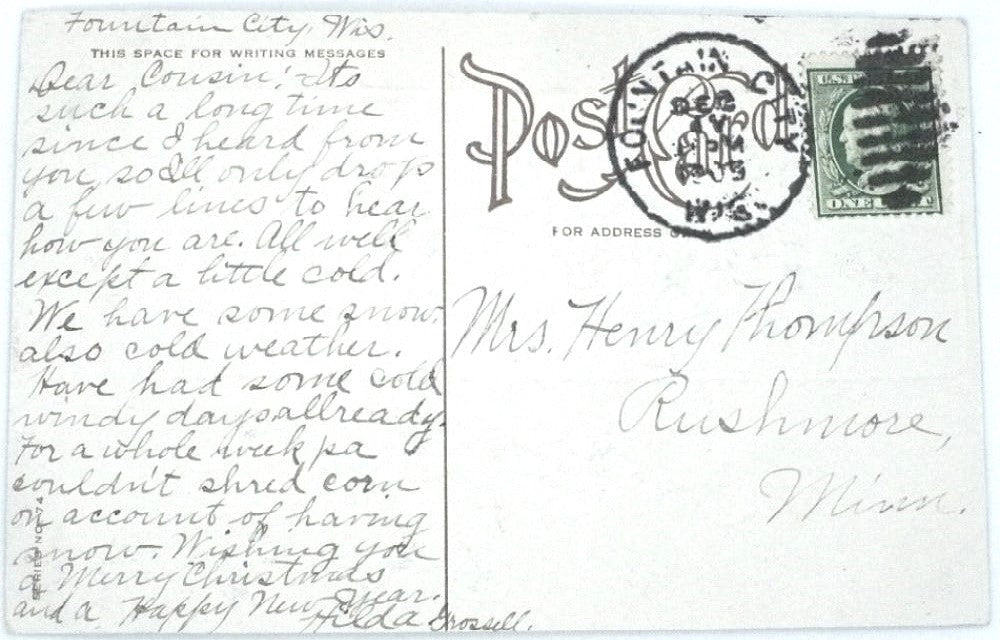 Fountain City, Wis.
THIS SPACE FOR WRITING MESSAGES
Dear Cousin:- Its
such a long time
since I heard from
you, so Ill only drop
a few lines to hear
how you are. All well
except a little cold.
We have some snow,
also cold weather.
Have had some cold
windy days allready.
For a whole week pa
couldn't shred corn
on account of having
snow. Wishing you
a Merry Christmas
and a Happy New Year.
Hilda Grossell.
SERIES NO. 74
Post Card
FOR ADDRESS
FOUNTAIN CITY
DEC
WIS.
U.S.
ONE
Mrs. Henry Thompson
Rushmore,
Minn.